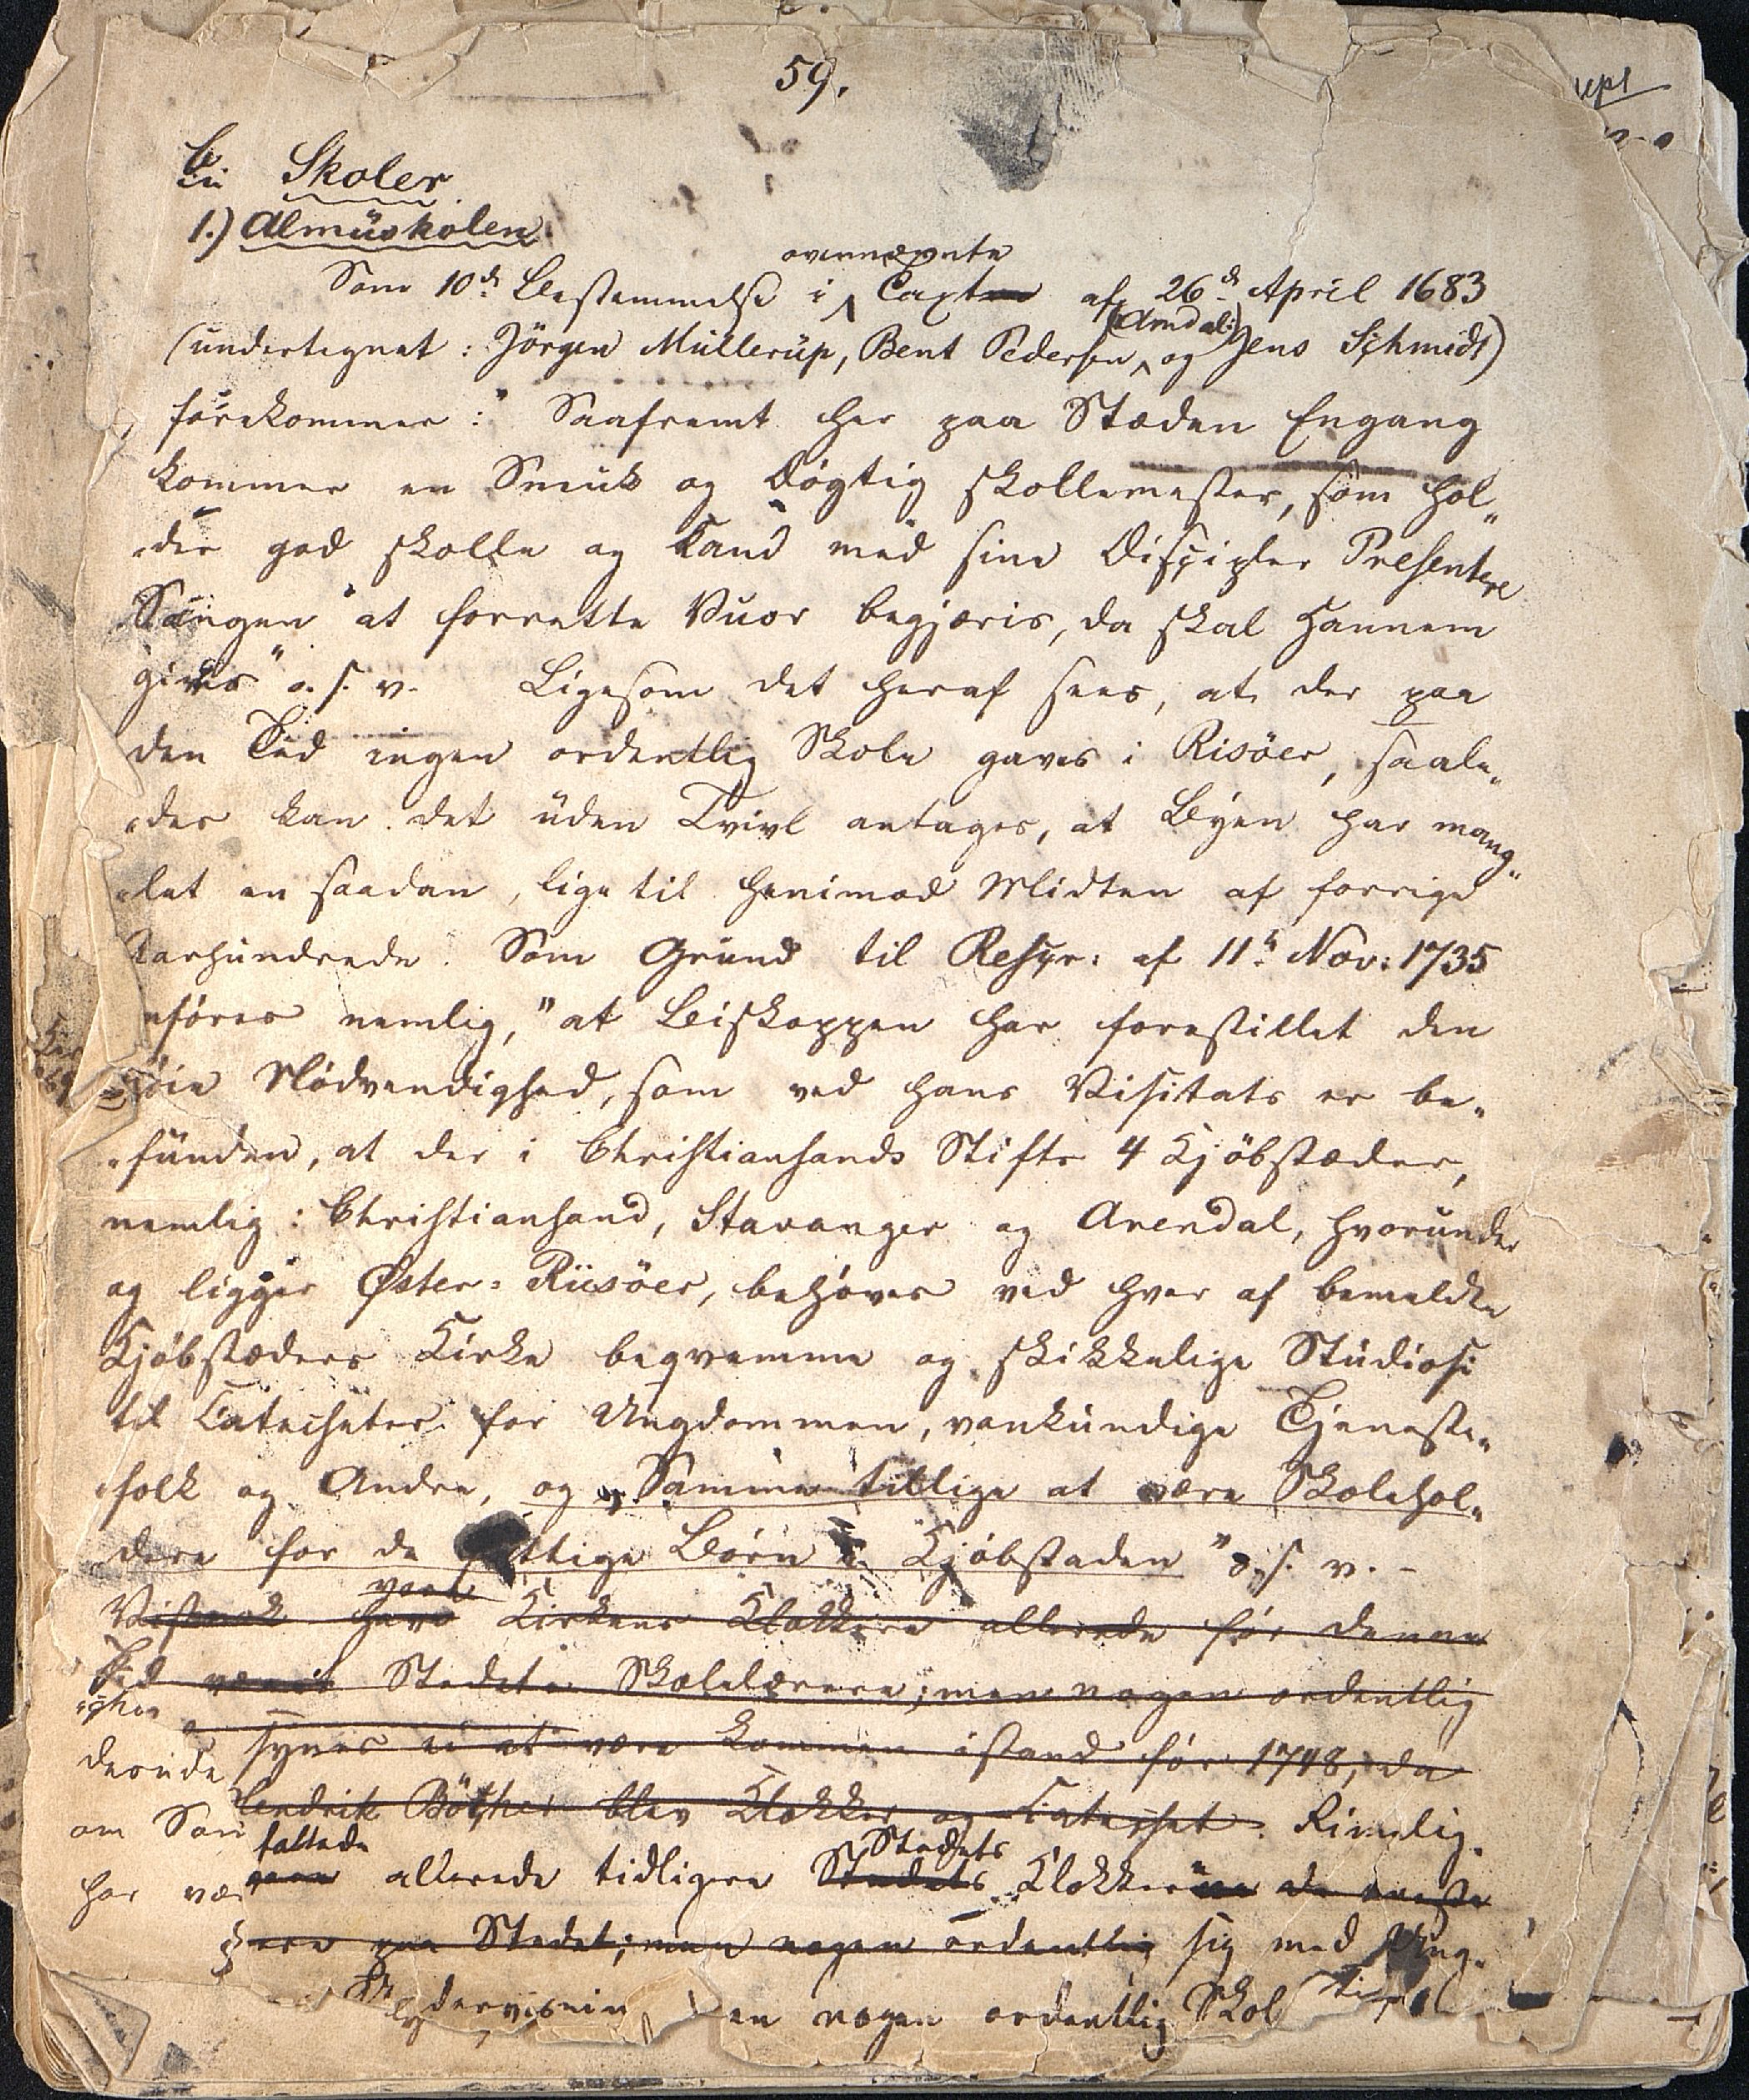 59.
C. Skoler
1.) Almuskolen.
overnævnte
Som 10de Bestemmelse i Taxt af 26de April 1683
(Arndal:)
(undertegnet: Jörgen Müllerüp, Bent Pedersen, og Jens Schmidt)
forekommer: "Saafremt her paa Stæden Engang
kommer en Smuk og Dögtig skollemester, som hol„
„der god skolle og kand med sine Discipler Presentere
Sangen at forrette Vuor begjæris, da skal Hannem
gives" o. s. v. Ligesom det heraf sees, at der paa
den Tid ingen ordentlig Skole gaves i Risöer, saale„
„des kan det uden Tvivl antages, at Byen har mang„
„let en saadan, lige til henimod Midten af forrige
Aarhundrede. Som Grund til Rescr: af 11te Nov: 1735
nföres nemlig, "at Biskoppen har forestillet den
höie Nödvendighed, som ved hans Visitats er be„
„funden, at der i Christiansands Stifts 4 Kjöbstæder,
nemlig: Christiansand, Stavanger og Arendal, hvorunder
og ligger Øster-Riisöer, behöves ved hver af bemeldte
Kjöbstæders Kirke beqvemme og skikkelige Studiosi
til Catecheter for Ungdommen, vankundige Tjeneste„
„folk og Andre, og Samme tillige at være Skolehol„
„dere for de fattige Börn i Kjöbstaden" o. s. v. –
vare
Vistnok have Kirkens Klokkere allerede för denne
Tid været Stedets Skolelærere; men nogen ordentlig
synes ei at være kommen istand för 1748, da
derude
endrik Böcher blev Klokker og Catechet. Rimelig„
om Son
sattede Stedets
har væ vare allerede tidligere Stedets Klokkere de eneste
ere paa Stedet; men nogen ordentlig sig med Ung„
dervisnin en nogen ordentlig Skol